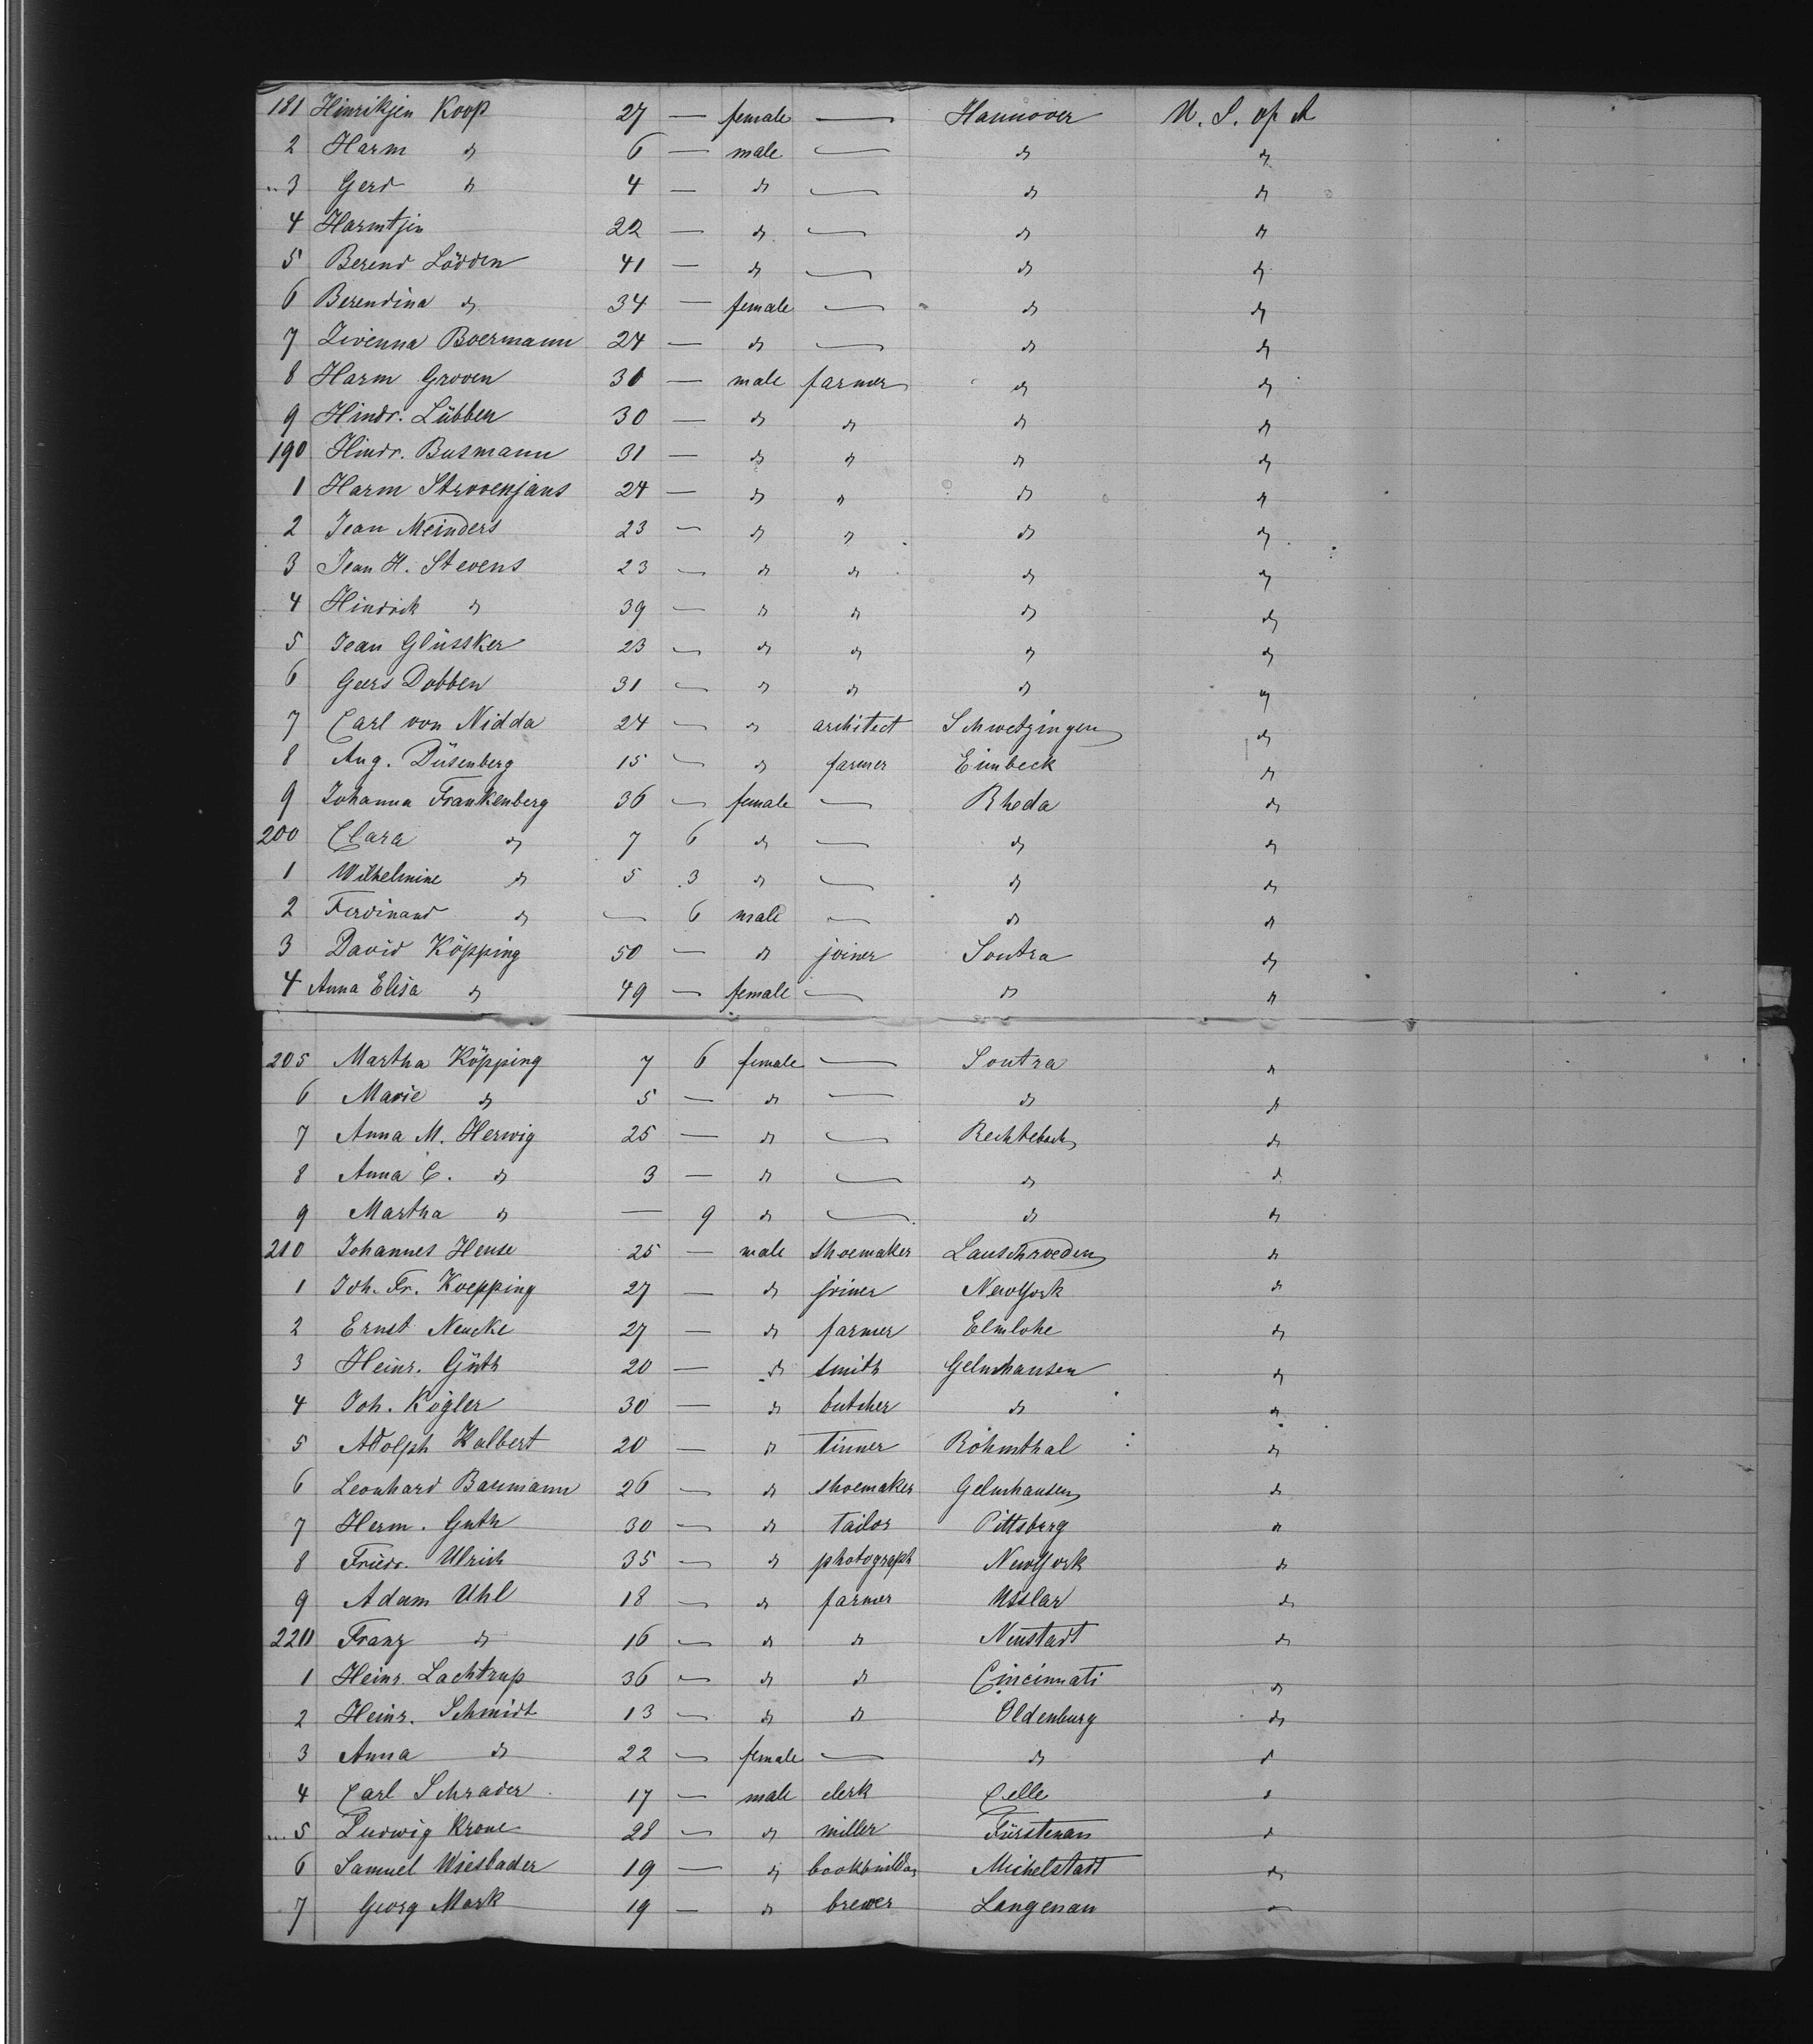 181 Hinrikjen Koop 27 — female — Hannover U. S. of A
2 Harm do 6 — male — do do
3 Gerd do 4 — do — do do
4 Harmtjen 22 — do — do do
5 Berend Lödden 41 — do — do do
6 Berendina do 34 — female — do do
7 Zwenna Boermann 24 — do — do do
8 Harm Groven 30 — male farmer do do
9 Hindr. Lübben 30 — do do do do
190 Hindr. Busmann 31 — do do do do
1 Harm Stroenjans 24 — do do do do
2 Jean Meinders 23 — do do do do
3 Jean H. Stevens 23 — do do do do
4 Hindrik do 39 — do do do do
5 Jean Glüssker 23 — do do do do
6 Geers Dobben 31 — do do do do
7 Carl von Nidda 24 — do architect Schwetzingen do
8 Aug. Düsenberg 15 — do farmer Einbeck do
9 Johanna Frankenberg 36 — female — Rheda do
200 Clara do 7 6 do — do do
1 Wilhelmine do 5 3 do — do do
2 Ferdinand do — 6 male — do do
3 David Köpping 50 — do joiner Sontra do
4 Anna Elisa do 49 — female — do do
205 Martha Köpping 7 6 female — Sontra do
6 Marie do 5 — do — do do
7 Anna M. Herwig 25 — do — Rechtebach do
8 Anna C. do 3 — do — do do
9 Martha do — 9 do — do do
210 Johannes Hense 25 — male shoemaker Lauschroeden do
1 Joh. Fr. Koepping 27 — do joiner NewYork do
2 Ernst Neucke 27 — do farmer Elmlohe do
3 Heinr. Güth 20 — do smith Gelnhausen do
4 Joh. Kögler 30 — do butcher do do
5 Adolph Kalbert 20 — do tinner Röhmthal do
6 Leonhard Baumann 26 — do shoemaker Gelnhausen do
7 Herm. Guth 30 — do tailor Pittsburg do
8 Friedr. Ulrich 35 — do photograph NewYork do
9 Adam Uhl 18 — do farmer Usslar do
220 Franz do 16 — do do Neustadt do
1 Heinr. Lachtrup 36 — do do Cincinnati do
2 Heinr. Schmidt 13 — do do Oldenburg do
3 Anna do 22 — female — do do
4 Carl Schrader 17 — male clerk Celle do
5 Ludwig Krone 28 — do miller Fürstenau do
6 Samuel Wiesbader 19 — do bookbinder Michelstadt do
7 Georg Mark 19 — do brewer Langenau —